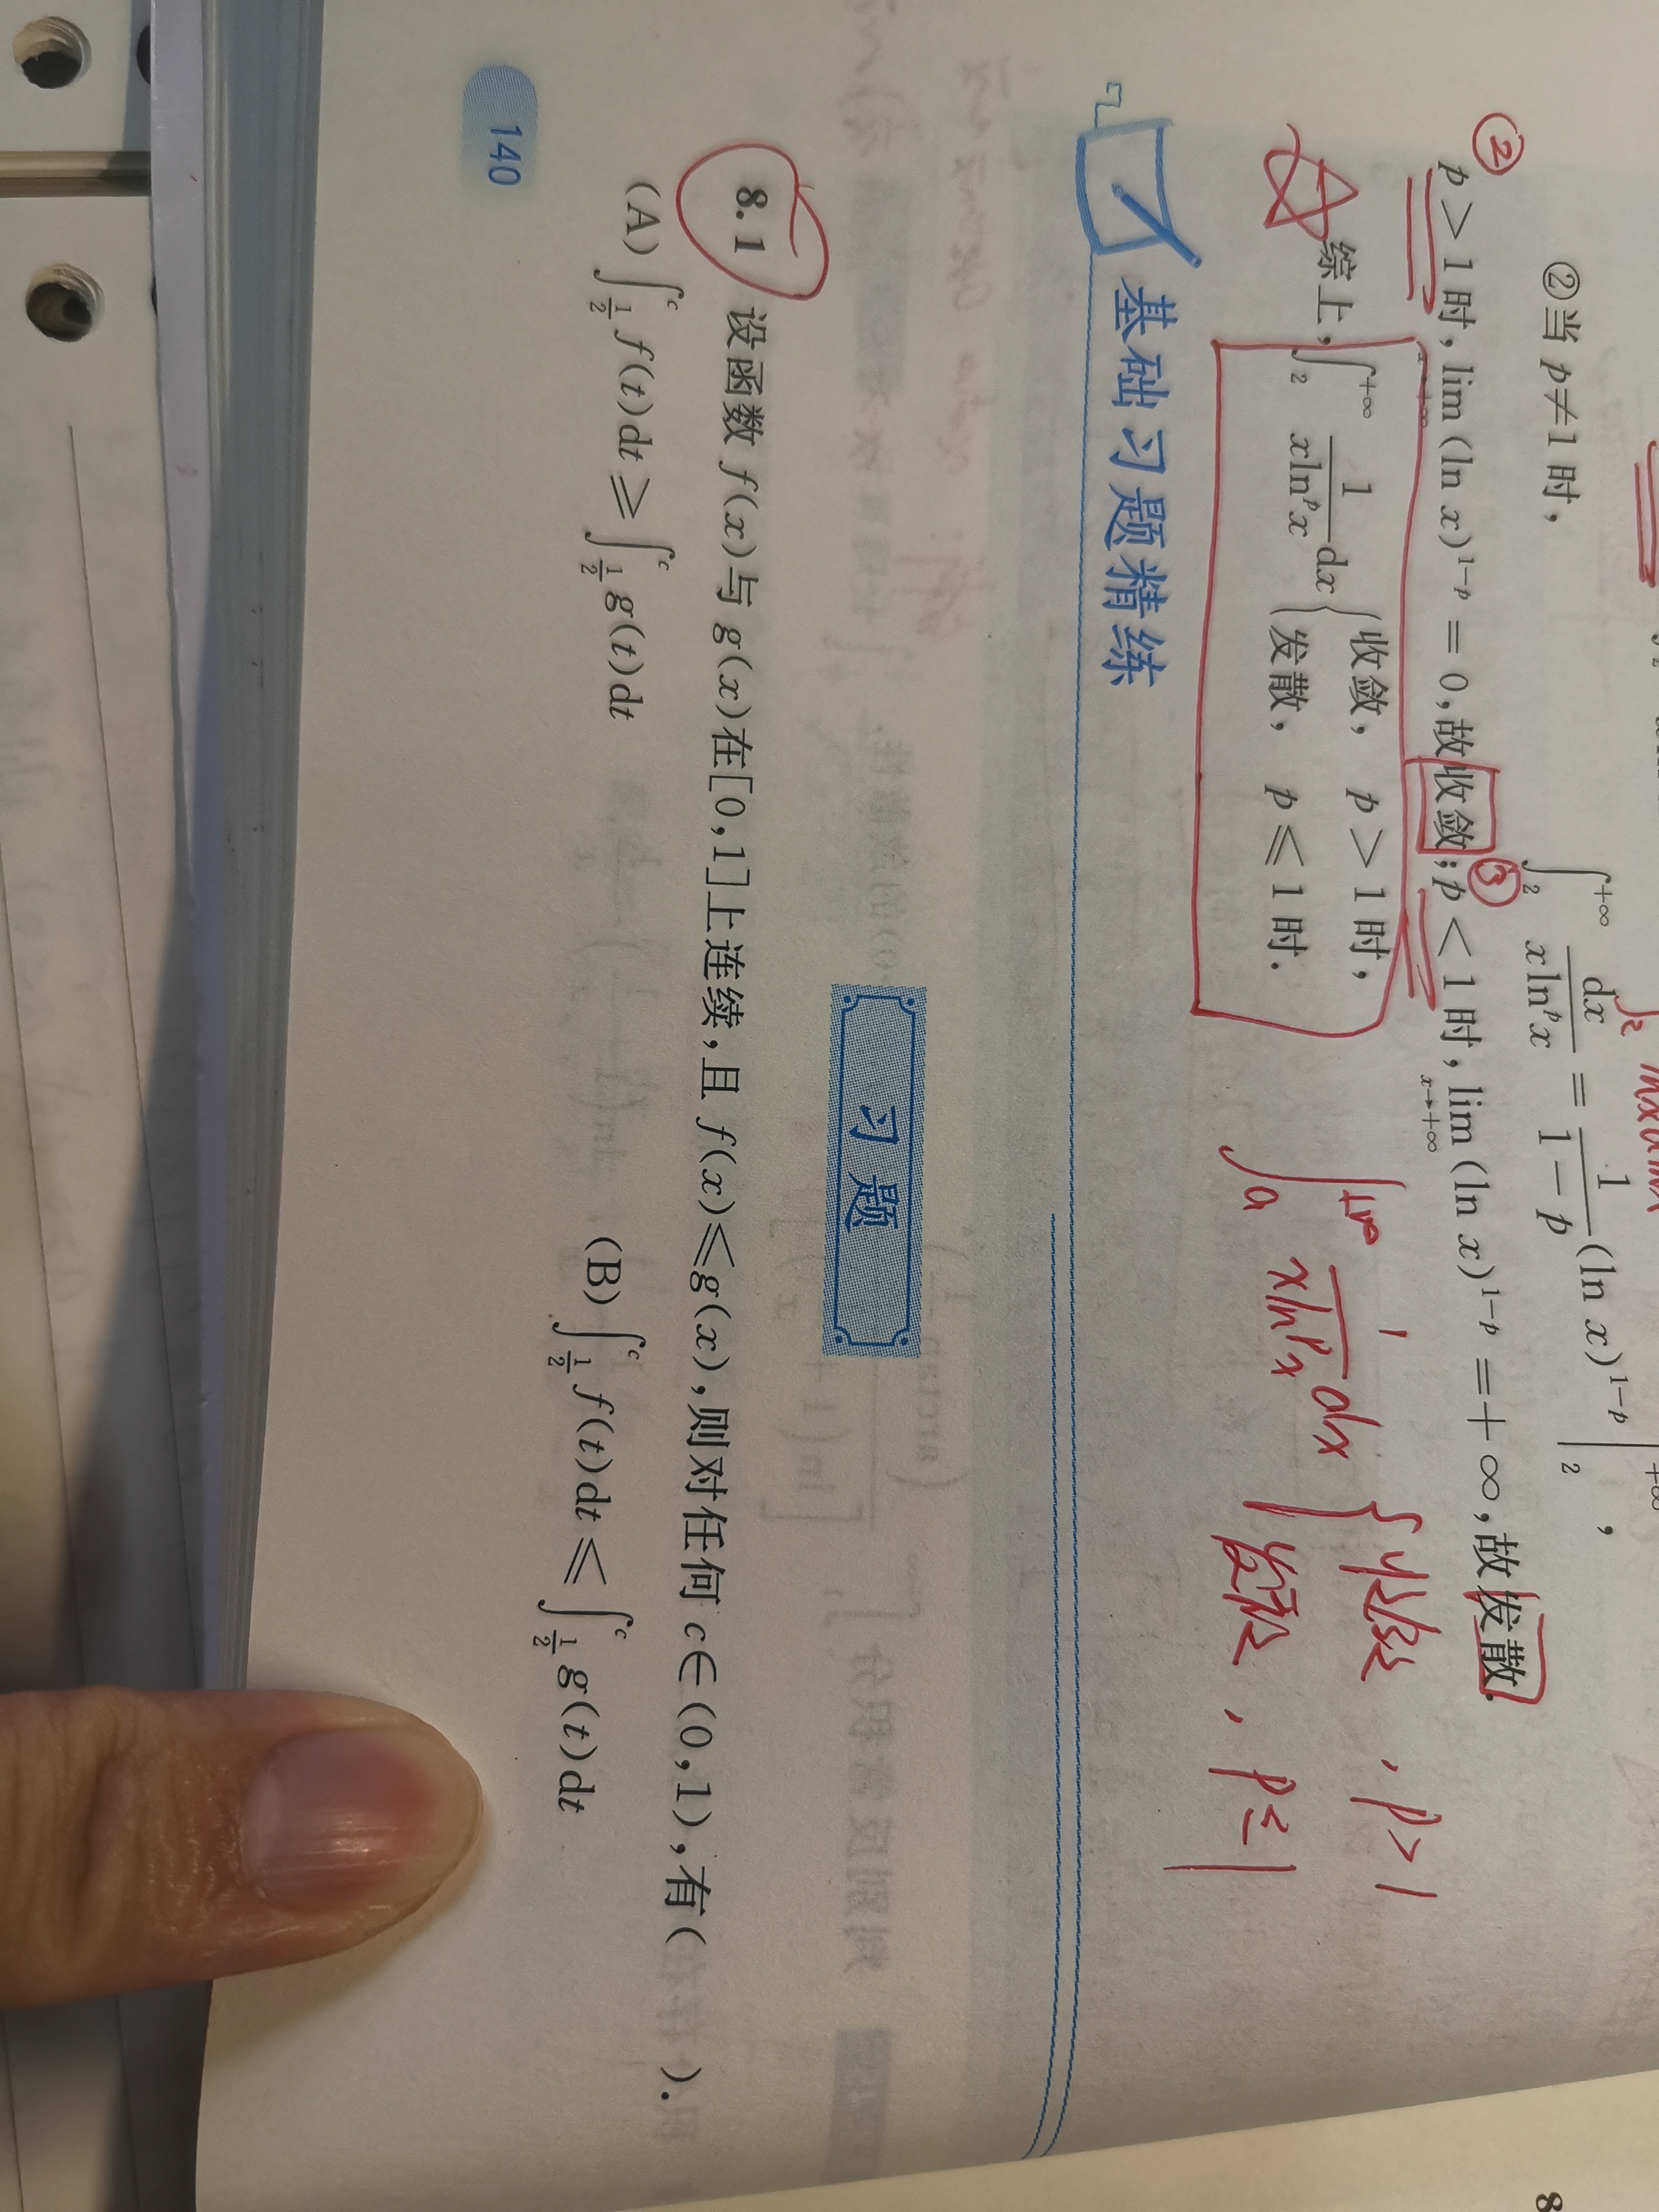 ②当 p≠1 时,
∫₂^{+∞} dx/(xlnᵖx) = 1/(1-p) (ln x)^{1-p} |₂^{+∞},
② p>1时, lim_{x→+∞} (ln x)^{1-p} = 0,故收敛; ③ p<1时, lim_{x→+∞} (ln x)^{1-p} =+∞,故发散.
综上, ∫₂^{+∞} 1/(xlnᵖx) dx { 收敛, p>1时, 发散, p≤1时.
∫ₐ^{+∞} 1/(xlnᵖx) dx { 收敛, p>1 发散, p≤1
基础习题精练
习题
8.1 设函数 f(x)与 g(x)在[0,1]上连续,且 f(x)≤g(x),则对任何 c∈(0,1),有( ).
(A) ∫_{1/2}^{c} f(t)dt ≥ ∫_{1/2}^{c} g(t)dt (B) ∫_{1/2}^{c} f(t)dt ≤ ∫_{1/2}^{c} g(t)dt
140